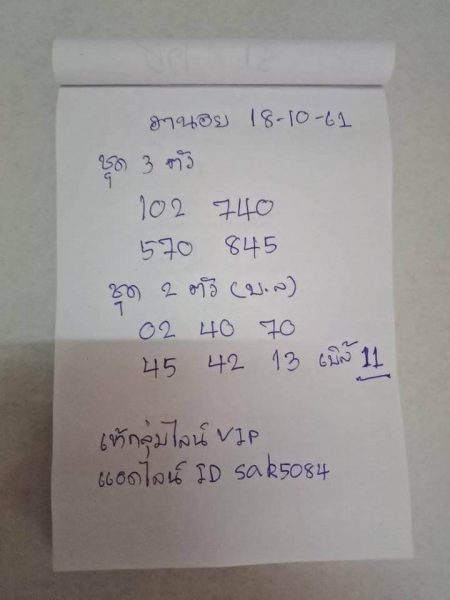 ฮานอย 18-10-61
ชุด 3 ตัว
102 740
570 845
ชุด 2 ตัว (บ.ล)
02 40 70
45 42 13 เบิ้ล 11
เข้ากลุ่มไลน์ VIP
แอดไลน์ ID sak5084